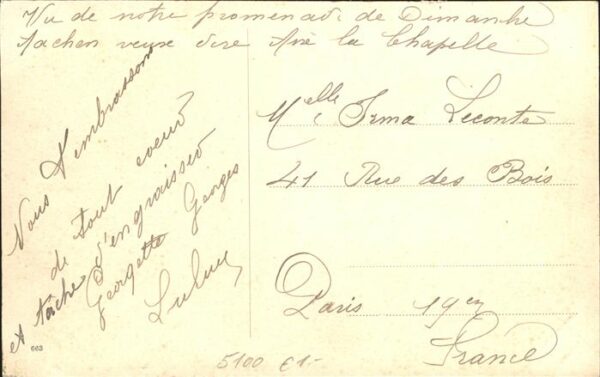 Vu de notre promenade de Dimanche
Aachen veux dire Aix la Chapelle
Nous t'embrassons
de tout coeur
et tâche d'engraisser
Georgette Georges
Lulu
Melle Irma Leconte
41 Rue des Bois
Paris 19em
France
663
5100 €1-